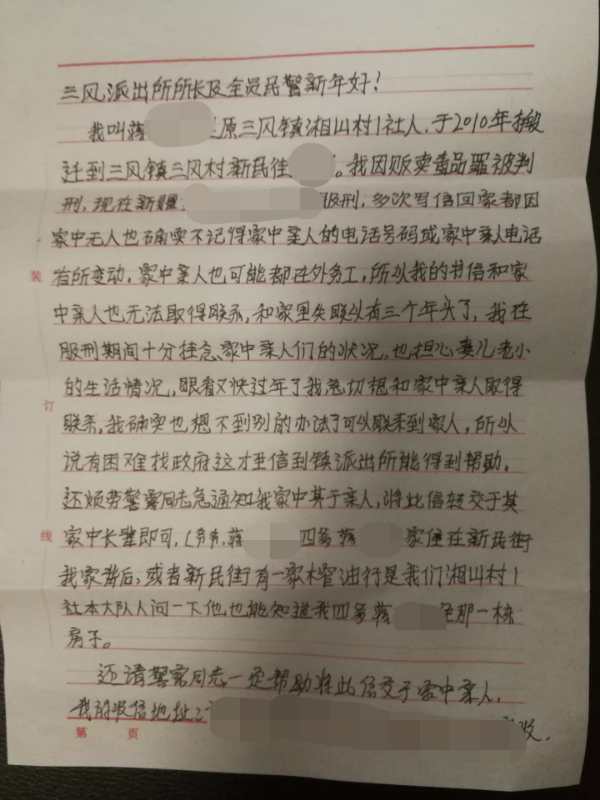 三风派出所所长及全员民警新年好！
我叫蒋 原三风镇湘山村1社人，于2010年搬
迁到三风镇三风村新民街 。我因贩卖毒品罪被判
刑，现在新疆 服刑，多次写信回家都因
家中无人也确实不记得家中亲人的电话号码或家中亲人电话
装
有所变动，家中亲人也可能都在外务工，所以我的书信和家
中亲人也无法取得联系，和家里失联以有三个年头了，我在
服刑期间十分挂念家中亲人们的状况，也担心妻儿老小
的生活情况，眼看又快过年了我急切想和家中亲人取得
订
联系，我确实也想不到别的办法了可以联系到家人，所以
说有困难找政府这才去信到镇派出所能得到帮助。
还烦劳警察同志急通知我家中某于亲人，将此信转交于其
线
家中长辈即可，（爷爷，蒋 四爷蒋 家住在新民街
我家背后，或者新民街有一家木管油行是我们湘山村1
社本大队人问一下他也能知道我四爷蒋 住那一栋
房子。
还请警察同志一定帮助将此信交于家中亲人，
我的收信地址： 收，
第 页